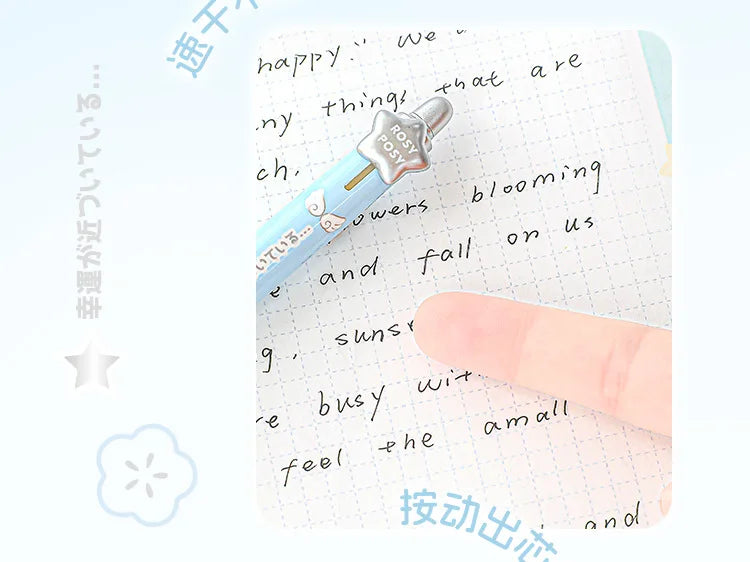 速干
幸運が近づいている...
happy." We
ny things that are
ch.
ROSY
POSY
いている...
owers blooming
e and fall on us
g, suns
re busy wit
feel the amall
and
按动出芯